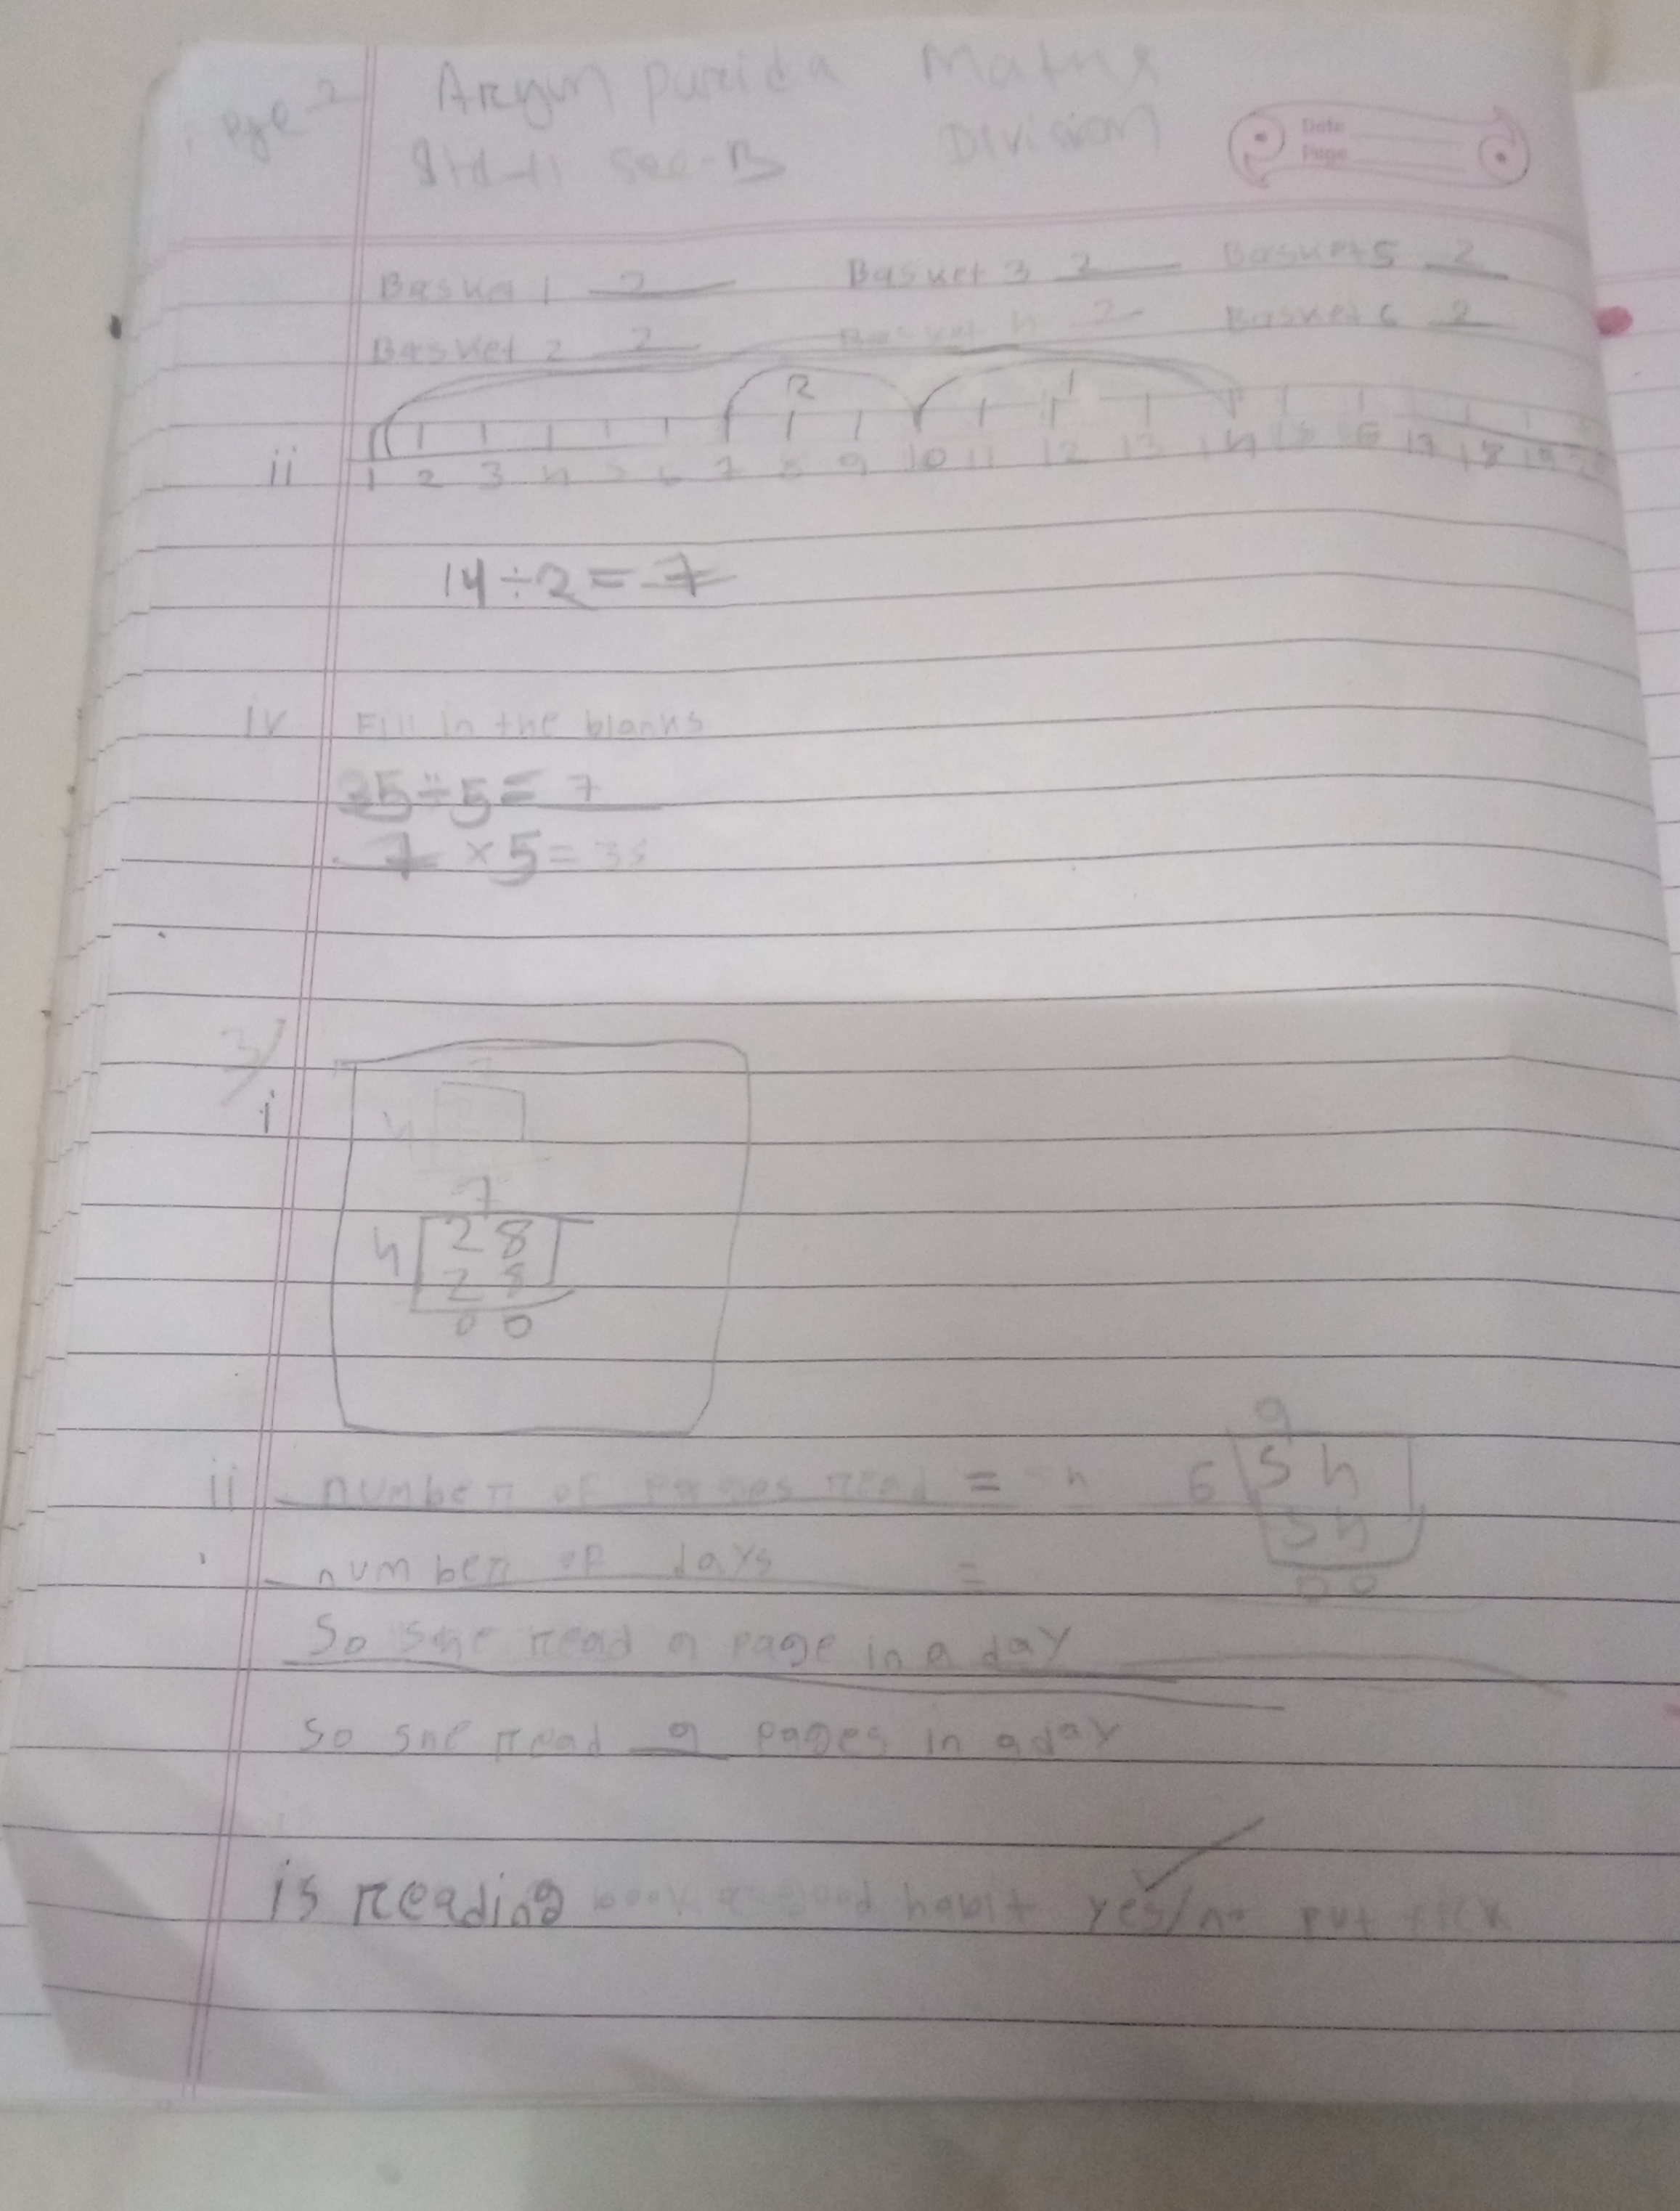 Page 2 Argun Purida Maths
Std-II Sec-B Division
Date
Page
Basket 1 2 Basket 3 2 Basket 5 2
Basket 2 2 Basket 4 2 Basket 6 2
2 1
ii 1 2 3 4 5 6 7 8 9 10 11 12 13 14 15 16 17 18 19
14÷2=7
iv Fill in the blanks
35÷5=7
7×5=35
3/
i
4
7
4 28
28
00
9
ii number of pages read = 54 6 54
54
number of days =
00
So she read 9 page in a day
So she read 9 pages in a day
is reading book a good habit yes/no put tick